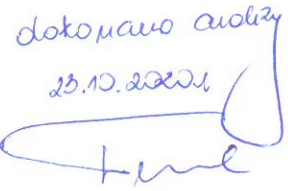 dokonano analizy
23.10.2020r